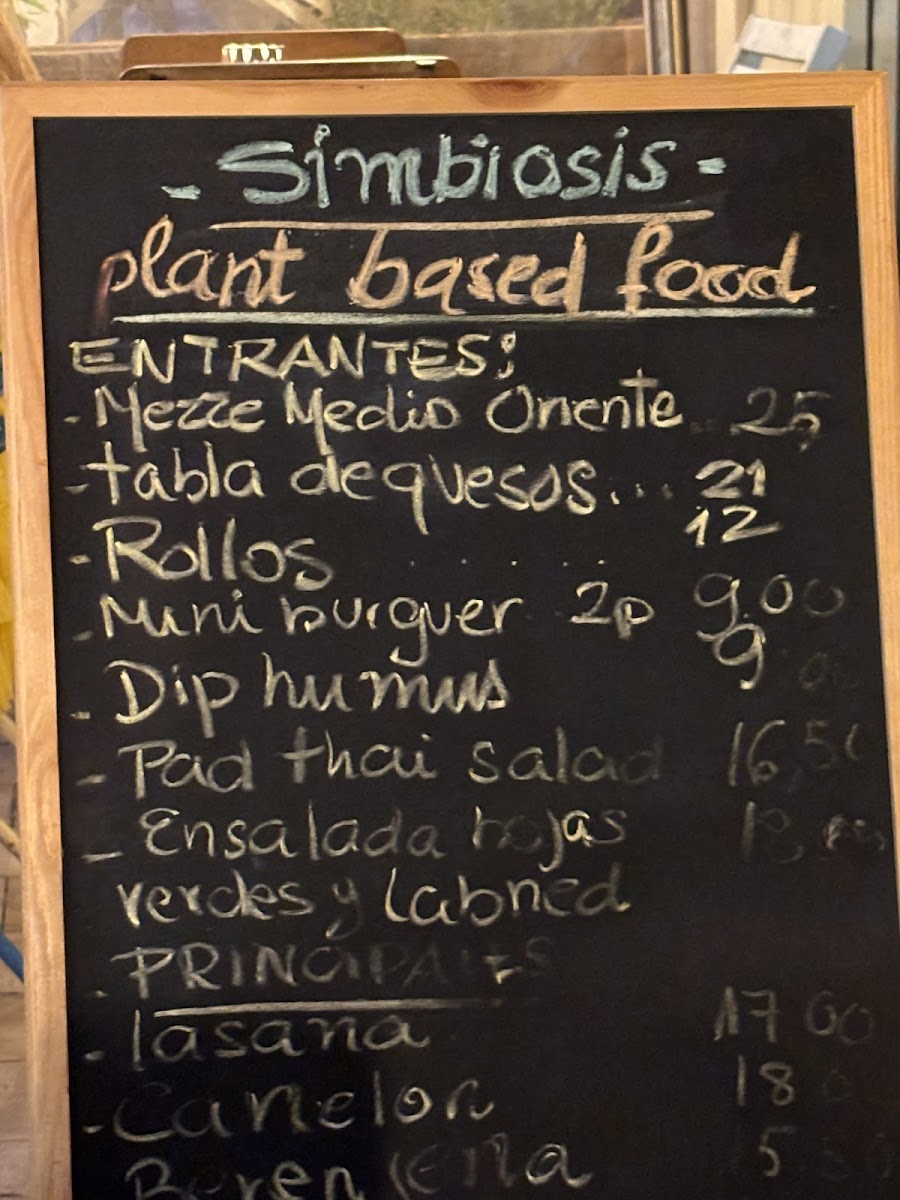 - Simbiosis -
plant based food
ENTRANTES:
- Mezze Medio Oriente... 25
- tabla de quesos... 21
- Rollos . . . . 12
- Mini burguer 2p 9.00
- Dip humus 9.00
- Pad thai salad 16,50
- Ensalada hojas
verdes y labned
- PRINCIPALES
- lasaña 17 00
- Canelon 18
Berenjena